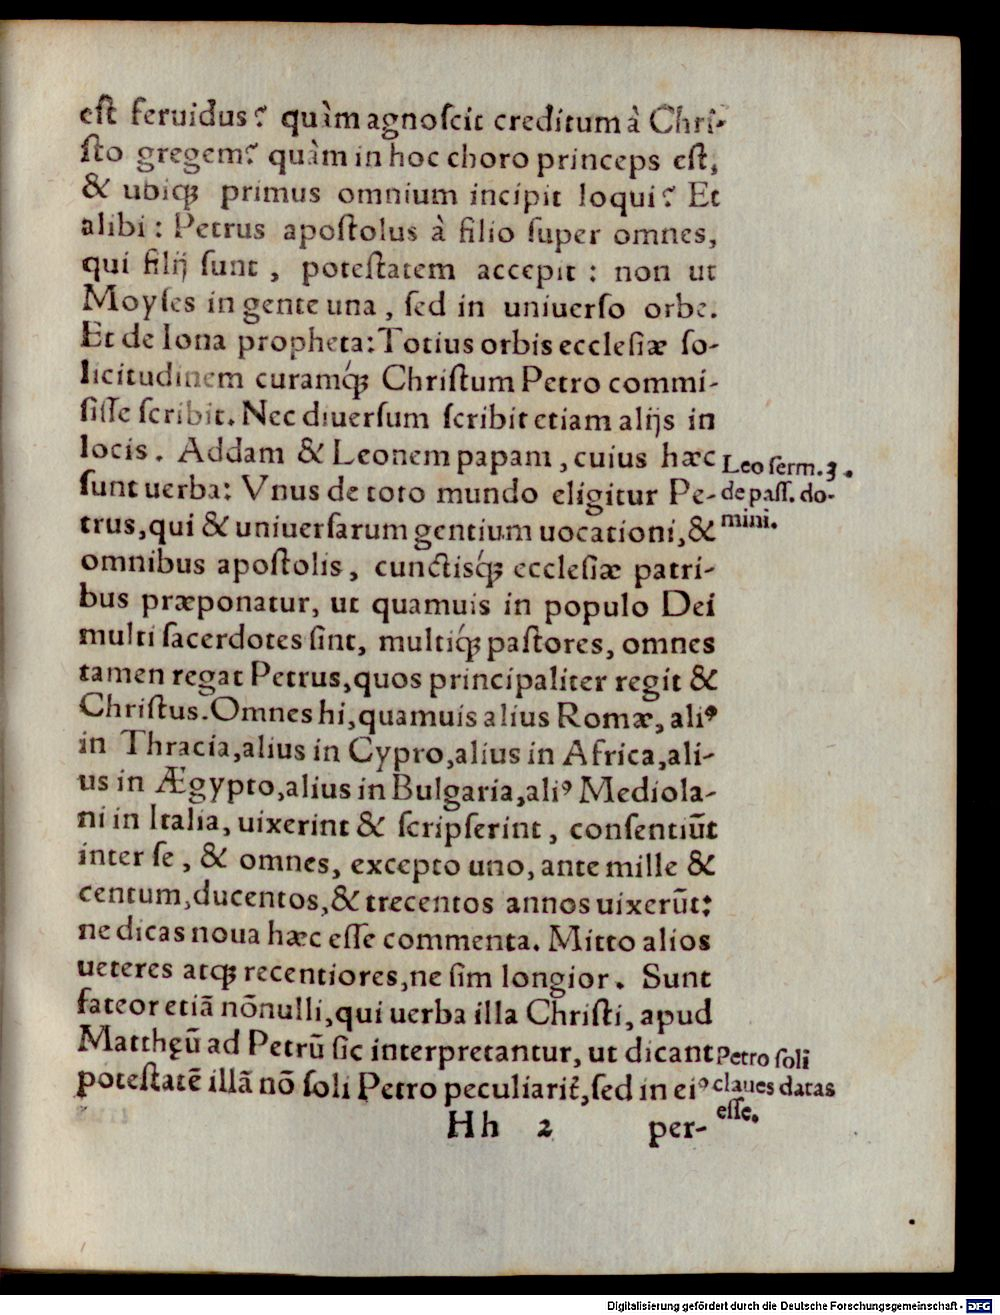 est feruidus? quàm agnoscit creditum à Chri-
sto gregem? quàm in hoc choro princeps est,
& ubiqꝫ primus omnium incipit loqui? Et
alibi: Petrus apostolus à filio super omnes,
qui filij sunt, potestatem accepit: non ut
Moyses in gente una, sed in uniuerso orbe.
Et de Iona propheta: Totius orbis ecclesiæ so-
licitudinem curamq́ꝫ Christum Petro commi-
sisse scribit. Nec diuersum scribit etiam alijs in
locis. Addam & Leonem papam, cuius hæc
sunt uerba: Vnus de toto mundo eligitur Pe-
trus, qui & uniuersarum gentium uocationi, &
omnibus apostolis, cunctisq́ꝫ ecclesiæ patri-
bus præponatur, ut quamuis in populo Dei
multi sacerdotes sint, multiq́ꝫ pastores, omnes
tamen regat Petrus, quos principaliter regit &
Christus. Omnes hi, quamuis alius Romæ, aliꝰ
in Thracia, alius in Cypro, alius in Africa, ali-
us in Ægypto, alius in Bulgaria, aliꝰ Mediola-
ni in Italia, uixerint & scripserint, consentiũt
inter se, & omnes, excepto uno, ante mille &
centum, ducentos, & trecentos annos uixerũt:
ne dicas noua hæc esse commenta. Mitto alios
ueteres atqꝫ recentiores, ne sim longior. Sunt
fateor etiã nõnulli, qui uerba illa Christi, apud
Matthęũ ad Petrũ sic interpretantur, ut dicant
potestatẽ illã nõ soli Petro peculiarit̃, sed in eiꝰ
Hh 2 per-
Leo serm. 3.
de pass. do-
mini.
Petro soli
claues datas
esse.
Digitalisierung gefördert durch die Deutsche Forschungsgemeinschaft - DFG